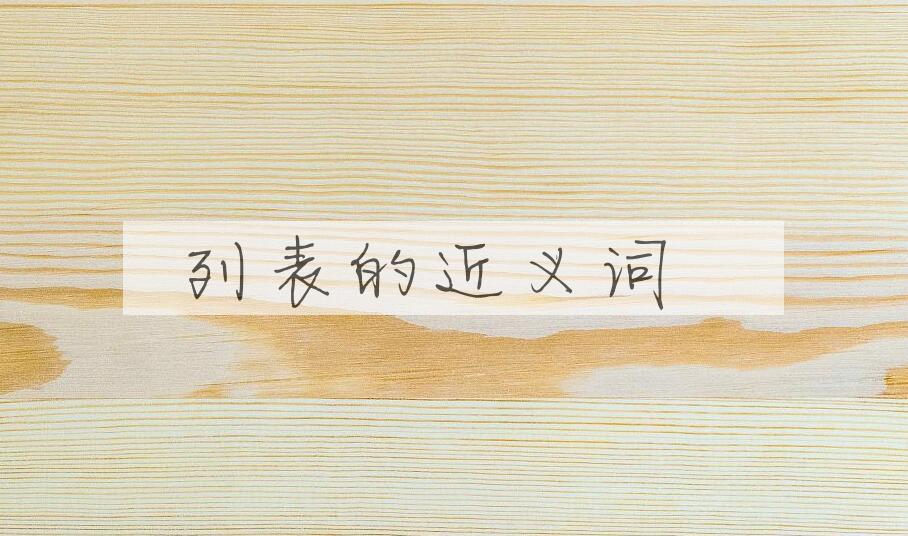 列表的近义词